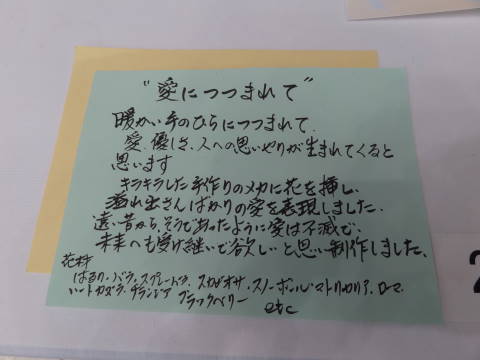 "愛につつまれて"
暖かい手のひらにつつまれて
愛、優しさ、人への思いやりが生まれてくると
思います
キラキラした手作りのメカに花を挿し、
溢れ出さんばかりの愛を表現しました.
遠い昔から、そうであったように愛は不滅で、
未来へも受け継いで欲しいと思い制作しました、
花材
バラ、スプレーバラ、スカビオサ、スノーボール、マトリカリア、ローマ
ハートカズラ、チランジア ブラックベリー etc
2